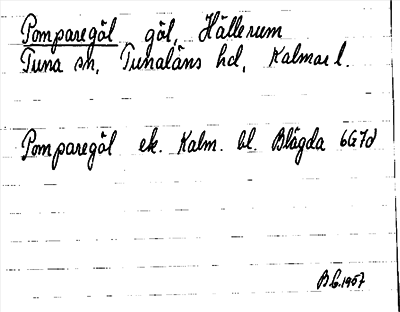 Pomparegöl göl, Hällerum
Tuna sn, Tunaläns hd, Kalmar l.
Pomparegöl ek. Kalm. bl. Blägda 6G7d
B.G. 1967